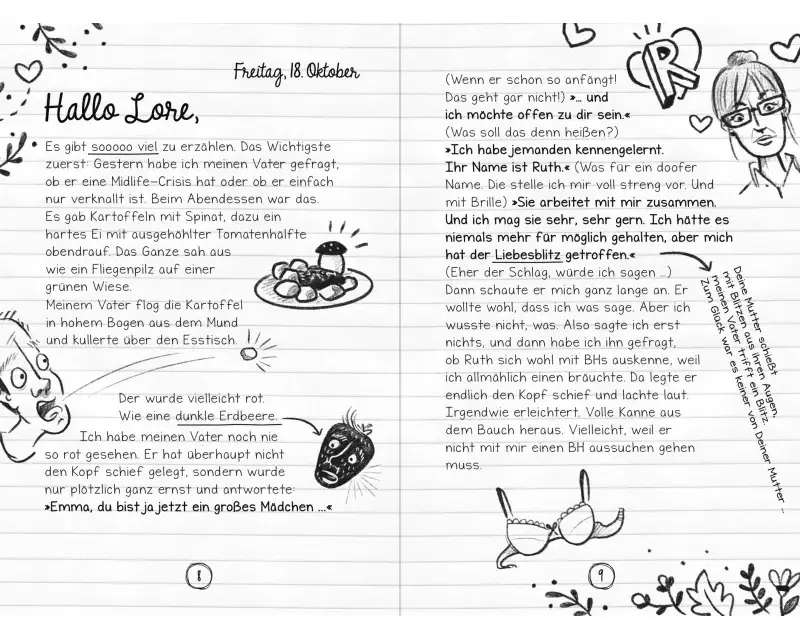 Freitag, 18. Oktober
Hallo Lore,
Es gibt sooooo viel zu erzählen. Das Wichtigste
zuerst: Gestern habe ich meinen Vater gefragt,
ob er eine Midlife-Crisis hat oder ob er einfach
nur verknallt ist. Beim Abendessen war das.
Es gab Kartoffeln mit Spinat, dazu ein
hartes Ei mit ausgehöhlter Tomatenhälfte
obendrauf. Das Ganze sah aus
wie ein Fliegenpilz auf einer
grünen Wiese.
Meinem Vater flog die Kartoffel
in hohem Bogen aus dem Mund
und kullerte über den Esstisch.
Der wurde vielleicht rot.
Wie eine dunkle Erdbeere.
Ich habe meinen Vater noch nie
so rot gesehen. Er hat überhaupt nicht
den Kopf schief gelegt, sondern wurde
nur plötzlich ganz ernst und antwortete:
»Emma, du bist ja jetzt ein großes Mädchen ...«
8
(Wenn er schon so anfängt!
Das geht gar nicht!) »... und
ich möchte offen zu dir sein.«
(Was soll das denn heißen?)
»Ich habe jemanden kennengelernt.
Ihr Name ist Ruth.« (Was für ein doofer
Name. Die stelle ich mir voll streng vor. Und
mit Brille) »Sie arbeitet mit mir zusammen.
Und ich mag sie sehr, sehr gern. Ich hätte es
niemals mehr für möglich gehalten, aber mich
hat der Liebesblitz getroffen.«
(Eher der Schlag, würde ich sagen ...)
Dann schaute er mich ganz lange an. Er
wollte wohl, dass ich was sage. Aber ich
wusste nicht, was. Also sagte ich erst
nichts, und dann habe ich ihn gefragt,
ob Ruth sich wohl mit BHs auskenne, weil
ich allmählich einen bräuchte. Da legte er
endlich den Kopf schief und lachte laut.
Irgendwie erleichtert. Volle Kanne aus
dem Bauch heraus. Vielleicht, weil er
nicht mit mir einen BH aussuchen gehen
muss.
R
Deine Mutter schießt
mit Blitzen aus ihren Augen,
meinen Vater trifft ein Blitz.
Zum Glück war es keiner von Deiner Mutter ...
9